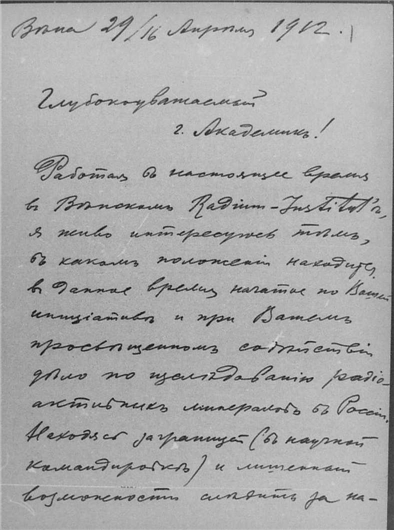 Вѣна 29/16 Апрѣля 1912.
Глубокоуважаемый
г. Академикъ!
Работая въ настоящее время
въ Вѣнскомъ Radium-Institut'ѣ,
я живо интересуюсь тѣмъ,
въ какомъ положенiи находится
въ данное время начатое по Вашей
иницiативѣ и при Вашемъ
просвѣщенномъ содѣйствiи
дѣло по изслѣдованiю радiо-
активныхъ минераловъ въ Россiи.
Находясь заграницей (въ научной
командировкѣ) и лишенный
возможности слѣдить за на-